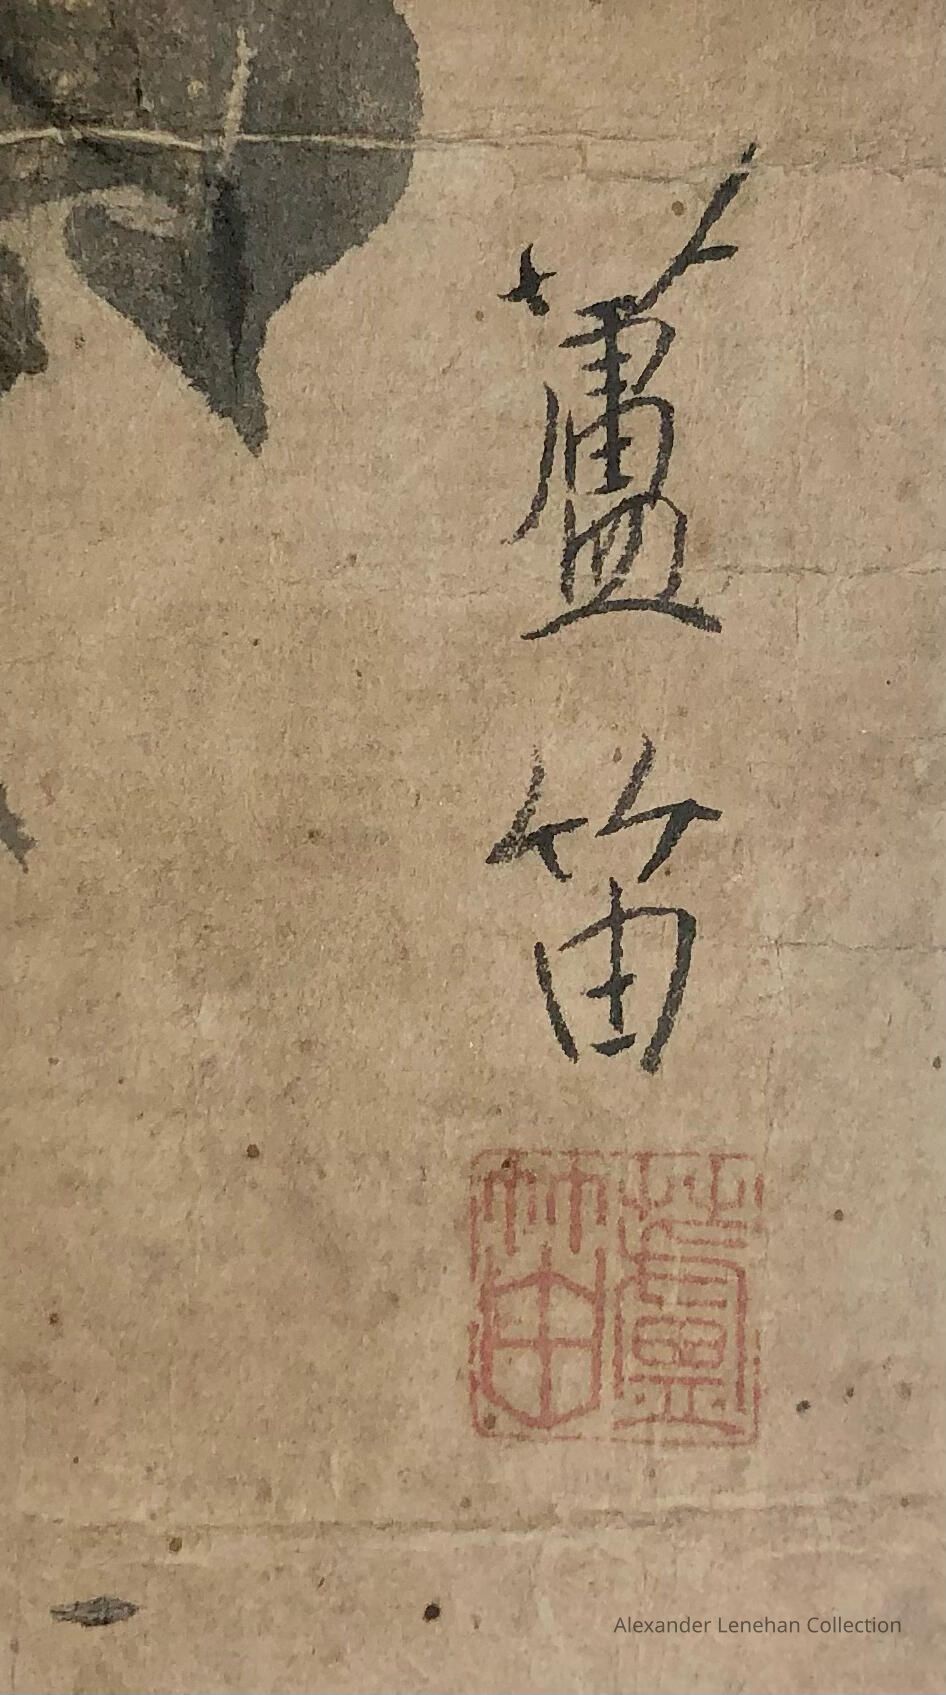 蘆笛
蘆笛
Alexander Lenehan Collection